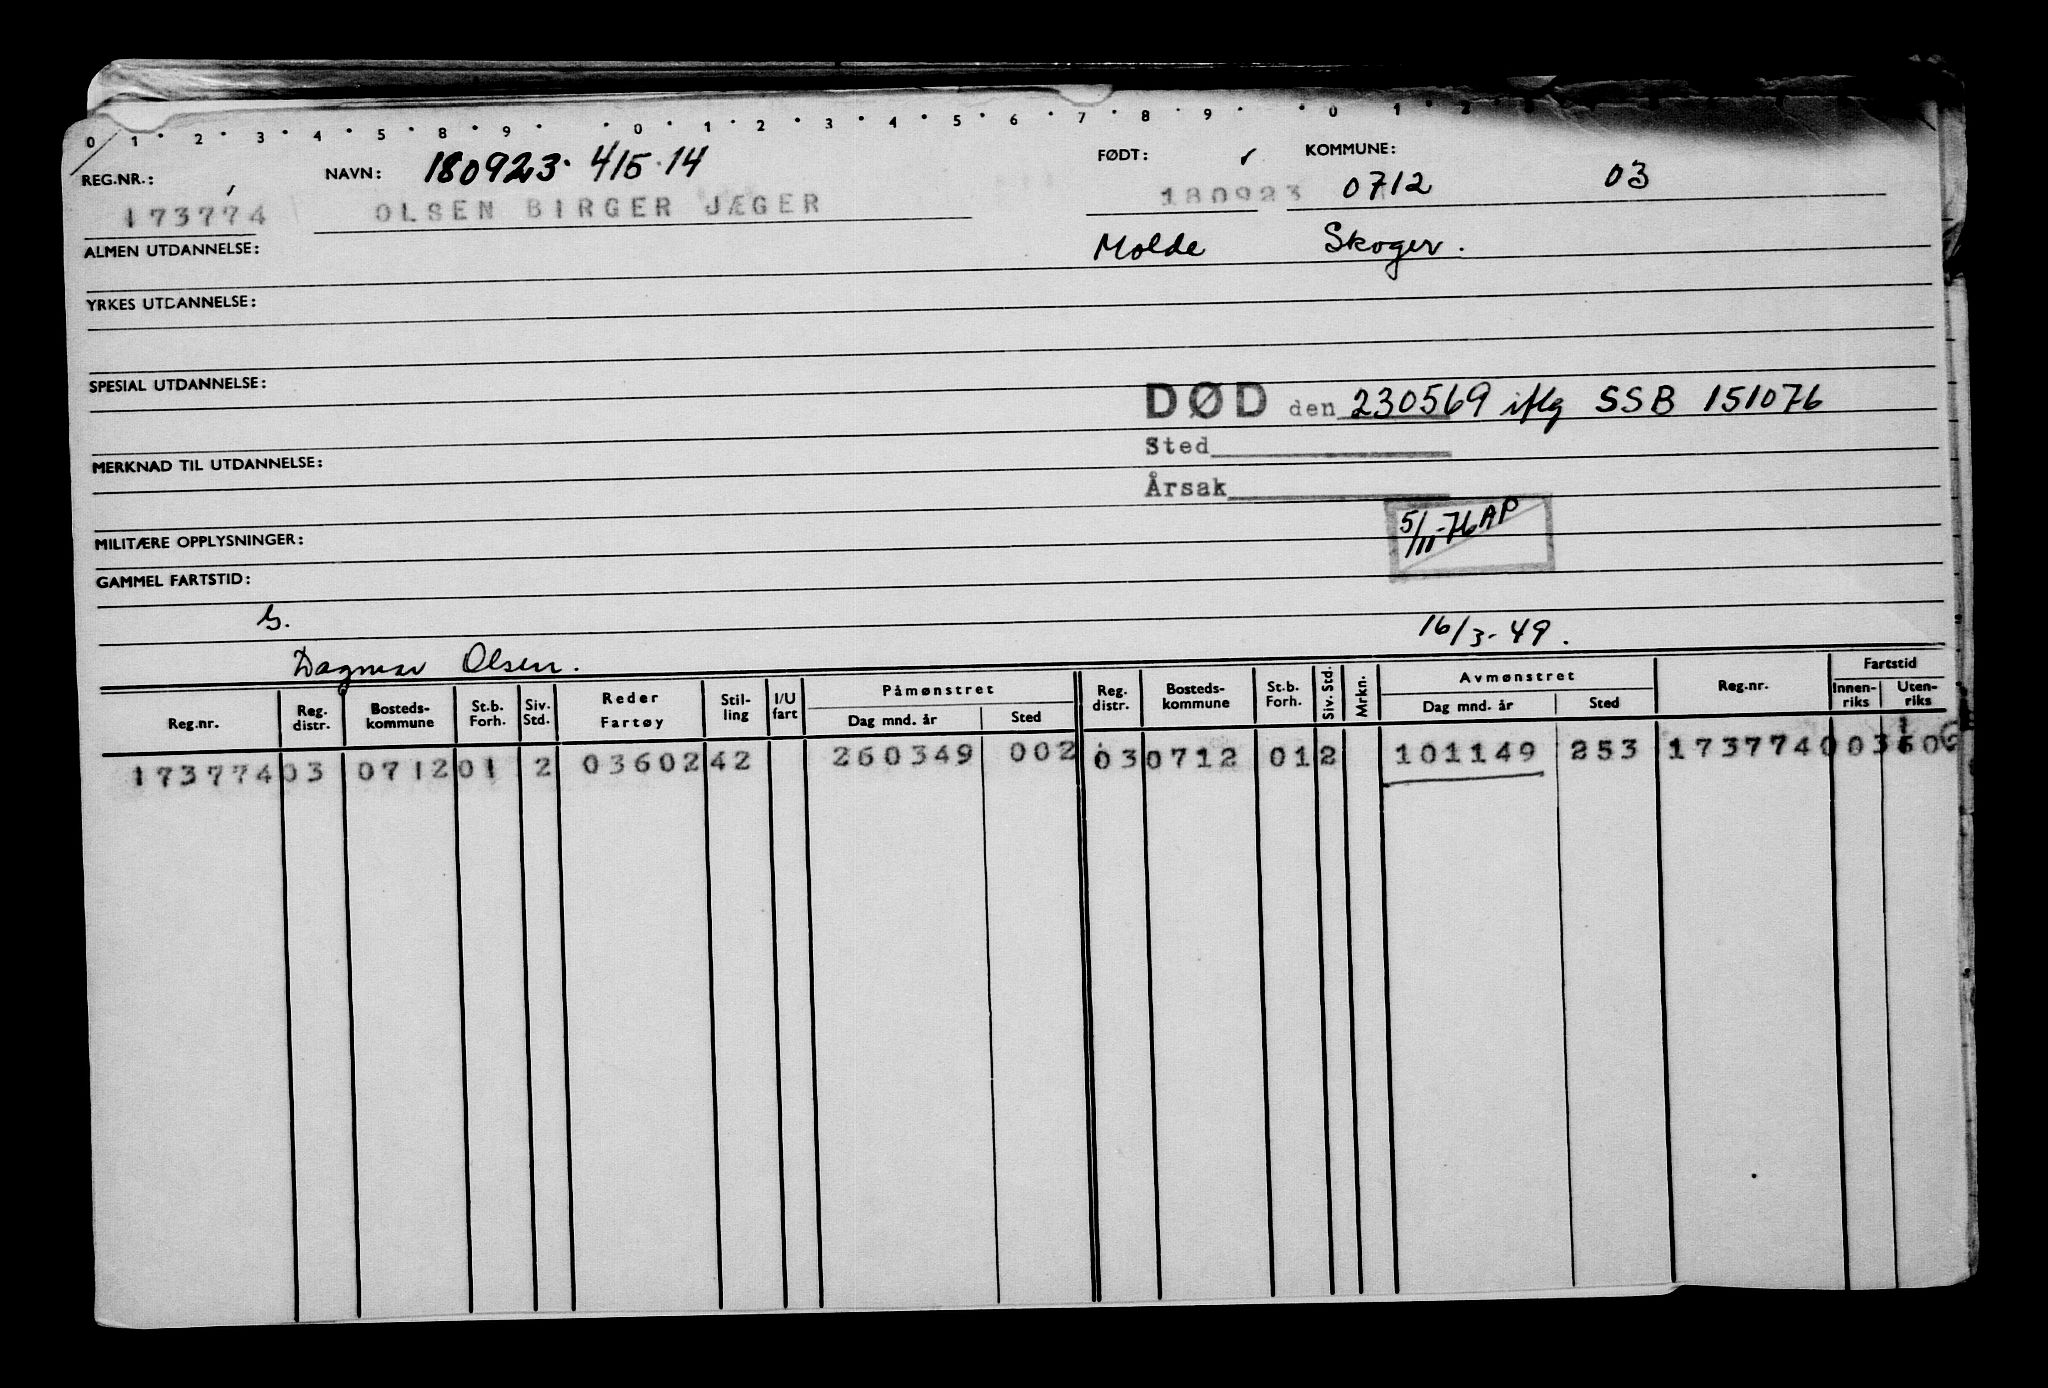 0 1 2 3 4 5 8 9 0 1 2 3 4 5 6 7 8 9 0 1 2
REG.NR.: NAVN: 180923. 415.14 FØDT: KOMMUNE: 0712 03
173774 OLSEN BIRGER JÆGER 180923
ALMEN UTDANNELSE: Molde Skoger.
YRKES UTDANNELSE:
SPESIAL UTDANNELSE:
DØD den 230569 iflg SSB 151076
Sted
MERKNAD TIL UTDANNELSE:
Årsak
5/11-76 AP
MILITÆRE OPPLYSNINGER:
GAMMEL FARTSTID:
G. 16/3-49.
Dagmar Olsen.
Reg.nr. Reg. distr. Bosteds-kommune St.b. Forh. Siv. Std. Reder Fartøy Stil-ling I/U fart Påmønstret Dag mnd. år Sted Reg. distr. Bosteds-kommune St.b. Forh. Siv. Std. Mrkn. Avmønstret Dag mnd. år Sted Reg.nr. Fartstid Innen-riks Uten-riks
173774 03 0712 01 2 03602 42 260349 002 03 0712 01 2 101149 253 173774 003